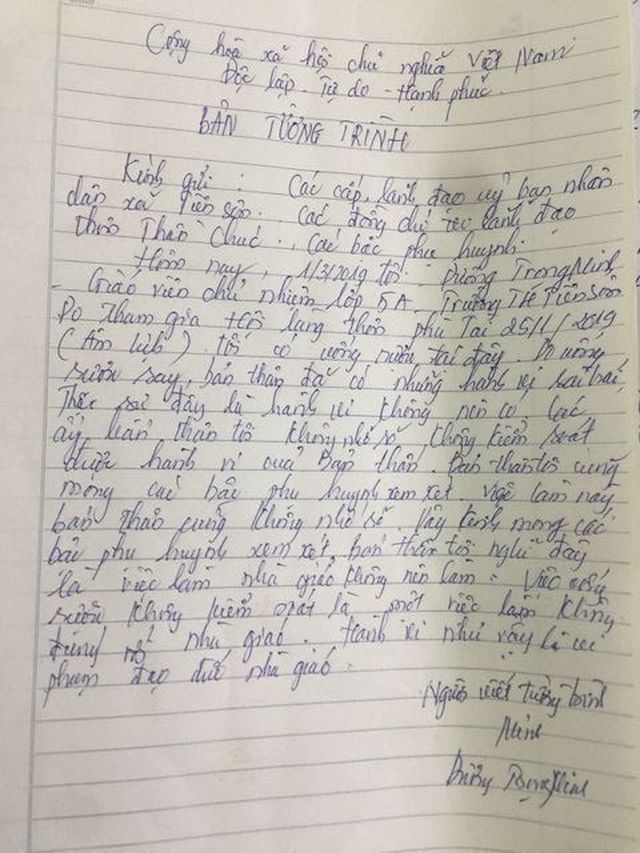 Cộng hoà xã hội chủ nghĩa Việt Nam
Độc lập - Tự do - Hạnh phúc.
BẢN TƯỜNG TRÌNH
Kính gửi : Các cấp, lãnh đạo uỷ ban nhân
dân xã Tiên Sơn. Các đồng chí lãnh đạo
thôn Thần Chúc., Các bác phụ huynh.
Hôm nay, 1/3/2019 tôi : Dương Trọng Minh
- Giáo viên chủ nhiệm lớp 5A. Trường TH Tiên Sơn
Do tham gia hội làng thôn phù Tài 25/1/2019
(Âm lịch). Tôi có uống rượu tại đây. Do uống
rượu say, bản thân đã có những hành vi sai trái,
Thực sự đây là hành vi không nên có. Lúc
ấy bản thân tôi không nhớ số, không kiểm soát
được hành vi của Bản thân. Bản thân tôi cũng
mong các bậc phụ huynh xem xét. Việc làm này
bản thân cũng không nhớ số. Vậy kính mong các
bậc phụ huynh xem xét. bản thân tôi nghĩ đây
là việc làm nhà giáo không nên làm. Việc uống
rượu không kiểm soát là một việc làm không
đúng nhà giáo. Hành vi như vậy là vi
phạm đạo đức nhà giáo.
Người viết tường trình
Minh
Dương Trọng Minh